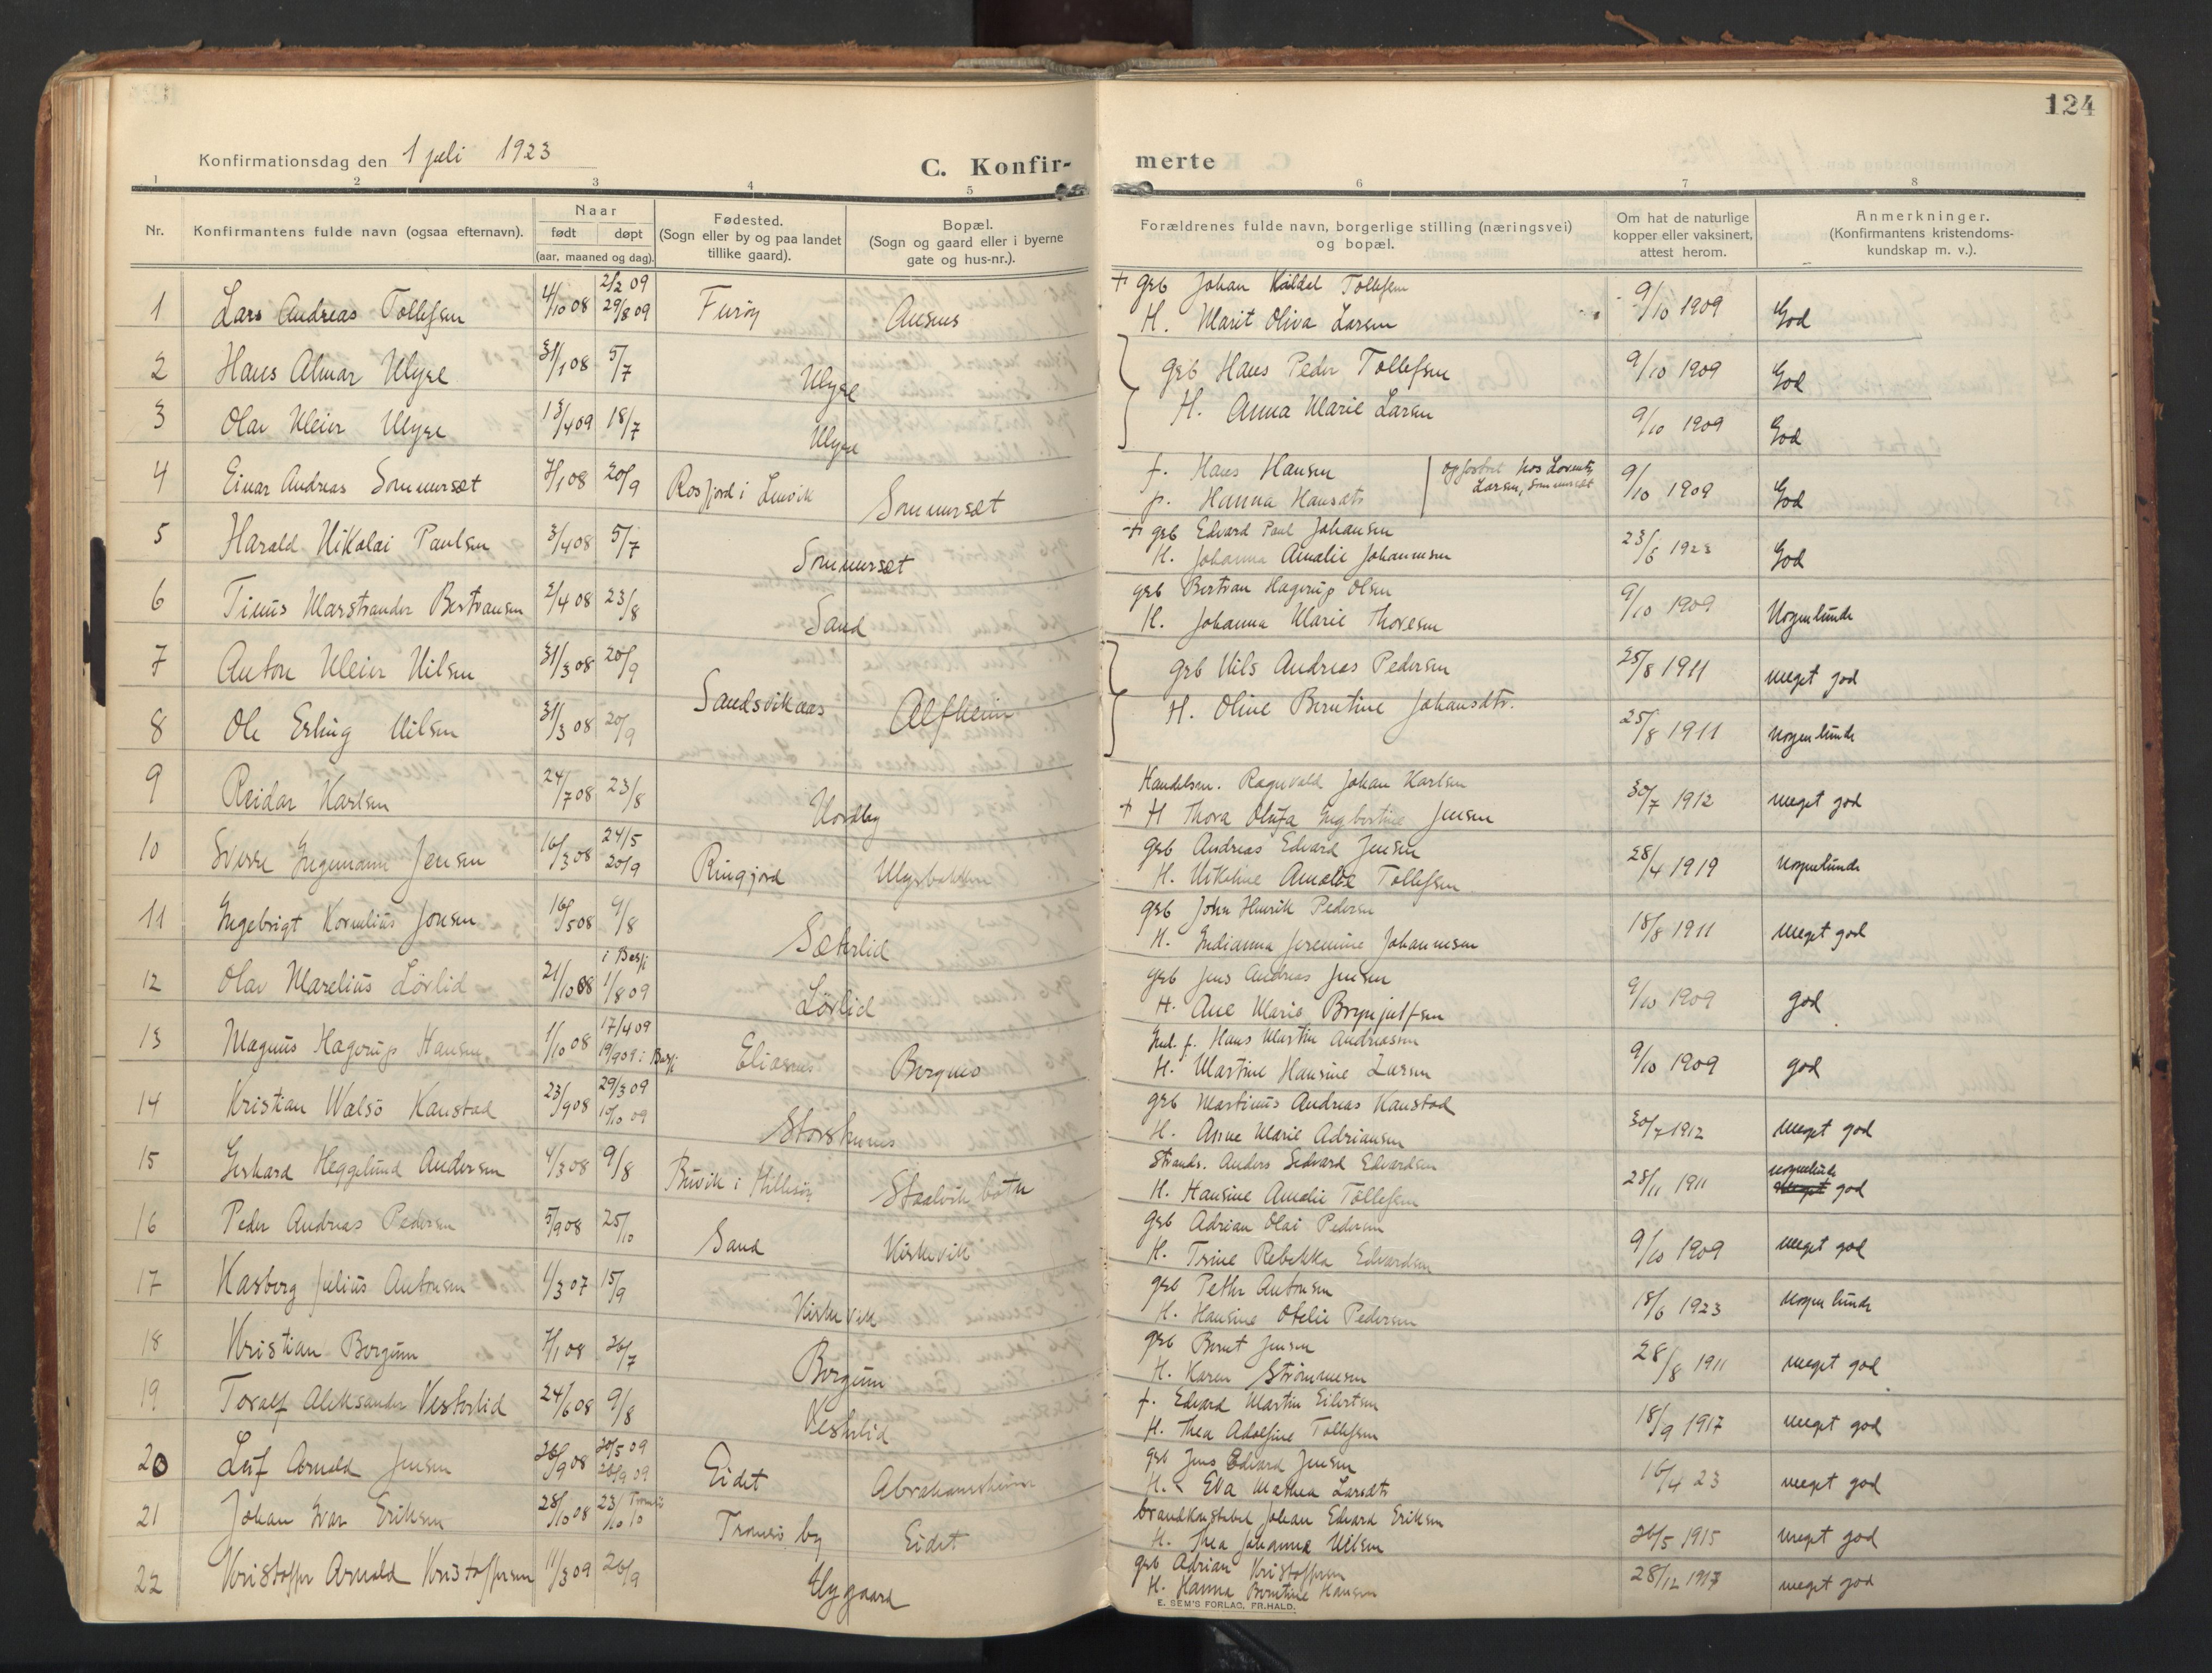 124
Konfirmationsdag den 1 juli 1923
C. Konfir-
merte
1 2 3 4 5 6 7 8
Nr.
Konfirmantens fulde navn (ogsaa efternavn).
Naar
født døpt
(aar, maaned og dag).
Fødested.
(Sogn eller by og paa landet
tillike gaard).
Bopæl.
(Sogn og gaard eller i byerne
gate og hus-nr.).
Forældrenes fulde navn, borgerlige stilling (næringsvei)
og bopæl.
Om hat de naturlige
kopper eller vaksinert,
attest herom.
Anmerkninger.
(Konfirmantens kristendoms-
kundskap m. v.).
2/2 09
+ grb Johan Kildal Tollefsen
1 Lars Andreas Tollefsen 4/10 08 29/8 09 Furøy Ausnes H. Marit Oliva Larsen 9/10 1909 God
2 Hans Almar Nlyre 31/1 08 5/7 grb Hans Peder Tollefsen 9/10 1909 God
3 Olav Kleier 13/4 09 18/7 H. Anna Marie Larsen 9/10 1909 God
4 Einar Andreas Sommerset 7/1 08 20/9 Rosfjord i Lenvik Sommerset f. Hans Hansen opfostret hos Lorents 9/10 1909 God
p. Hanna Hansdtr Larsen, Sommerset
5 Harald Nikolai Paulsen 3/4 08 5/7 Sommerset + grb Edvard Paul Johansen 23/6 1923 God
H. Johanna Amalie Johannesen
6 Tinus Marstrander Bertransen 2/4 08 23/8 Sand grb Bertran Hagerup Olsen 9/10 1909 Nogenlunde
H. Johanna Marie Thoresen
7 Anton Kleier Nilsen 31/3 08 20/9 grb Nils Andreas Pedersen 25/8 1911 meget god
Sandsvikaas Alfheim
8 Ole Erling Nilsen 31/3 08 20/9 H. Oline Berntine Johansdtr. 25/8 1911 nogenlunde
9 Reidar Karlsen 24/7 08 23/8 Nordby Handelsm. Ragnvald Johan Karlsen 30/7 1912 meget god
+ H Thora Olufa Ingbertine Jensen
10 Sverre Ingemann Jensen 16/3 08 24/5 20/9 Ringjord grb Andreas Edvard Jensen 28/4 1919 nogenlunde
H. Nikoline Amalie Tollefsen
11 Ingebrigt Kornelius Jonsen 16/5 08 9/8 Sæterlid grb John Henrik Pedersen 18/8 1911 meget god
H. Indianna Jeremine Johannesen
12 Olav Marelius Lørlid 21/10 08 1/8 09 Lørlid grb Jens Andreas Jensen 9/10 1909 god
H. Ane Marie Brynjulfsen
13 Magnus Hagerup Hansen 1/10 08 17/4 09 Eliasnes Bergnes f. Hans Martin Andreassen 9/10 1909 god
H. Martine Hansine Larsen
14 Kristian Walsö Kanstad 23/9 08 29/3 09 grb Martinus Andreas Kanstad 30/7 1912 meget god
H. Anne Marie Adriansen
15 Gerhard Heggelund Andersen 4/3 08 9/8 Buvik i Hillesøy Staalvikbotn Strands. Anders Sedvard Edvardsen 28/11 1911 nogenlunde
H. Hansine Amalie Tollefsen meget god
16 Peder Andreas Pedersen 5/9 08 25/10 Sand Kirkevik grb Adrian Olai Pedersen 9/10 1909 meget god
H. Trine Rebekka Edvardsen
17 Kasborg Julius Antonsen 1/3 07 15/9 Kirkevik grb Petter Antonsen 18/6 1923 nogenlunde
H. Hansine Otelie Pedersen
18 Kristian Borgum 7/1 08 26/7 Borgum grb Bernt Jensen 28/8 1911 meget god
H. Karen Strømmesen
19 Toralf Aleksander Vesterlid 24/6 08 9/8 Vesterlid f. Edvard Martin Eilertsen 18/9 1917 meget god
H. Thea Adolfine Tollefsen
20 Leif Arnold Jensen 26/9 08 30/5 09 26/9 09 Eidet Abrahamsheim grb Jens Edvard Jensen 16/4 23 meget god
H. Eva Mathea Larsdtr
21 Johan Ivar Eriksen 28/10 08 23/10 Tromsö by Eidet brandkonstabel Johan Edvard Eriksen 26/5 1915 meget god
H. Thea Johanna Nilsen
22 Kristoffer Arnold Kristoffersen 11/3 09 26/9 Nygaard grb Adrian Kristoffersen 28/12 1917 meget god
H. Hanna Berntine Hansen
E. SEM'S FORLAG, FR.HALD.